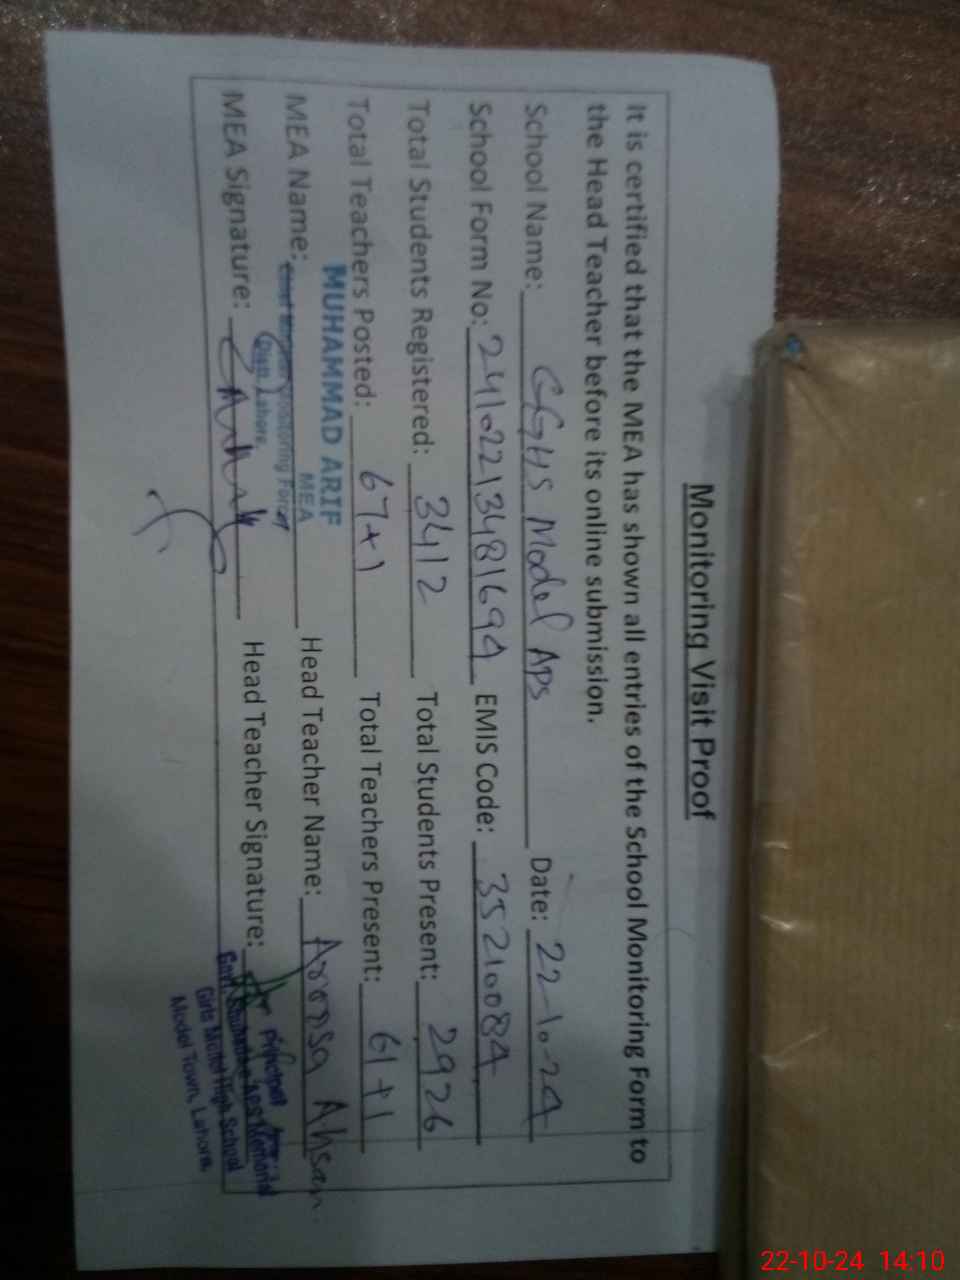 Monitoring Visit Proof
It is certified that the MEA has shown all entries of the School Monitoring Form to
the Head Teacher before its online submission.
School Name: GGHS Model APS Date: 22-10-24
School Form No: 24102213481694 EMIS Code: 35210084
Total Students Registered: 3412 Total Students Present: 2926
Total Teachers Posted: 67+1 Total Teachers Present: 61+1
MUHAMMAD ARIF
MEA
MEA Name: Monitoring Force Head Teacher Name: Aroosa Ahsan.
Lahore.
MEA Signature: Head Teacher Signature:
Principal
Govt. Memorial
Girls Model High School
Model Town, Lahore.
22-10-24 14:10